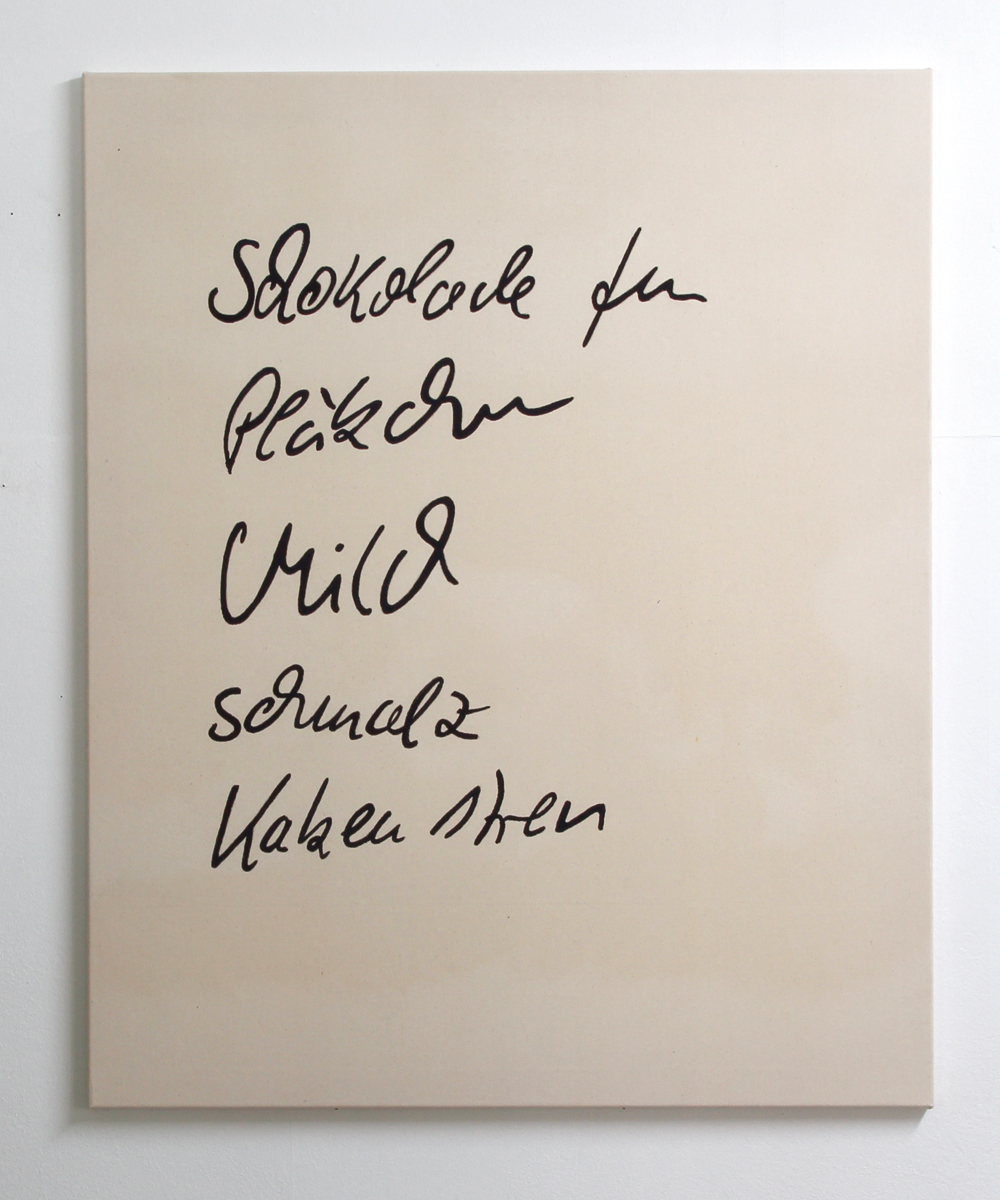 Schokolade für
Plätzchen
Milch
schmalz
Katzen streu